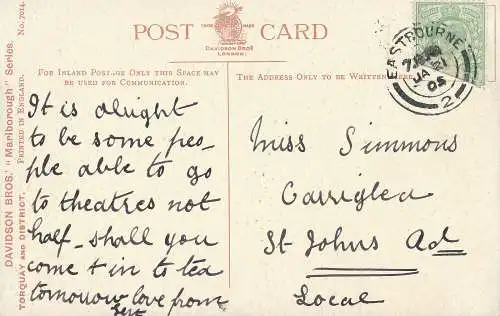 POST CARD
DAVIDSON BROS.
LONDON.
DAVIDSON BROS.' "Marlborough" Series.
TORQUAY AND DISTRICT.
PRINTED IN ENGLAND.
No. 7014.
FOR INLAND POSTAGE ONLY THIS SPACE MAY
BE USED FOR COMMUNICATION.
THE ADDRESS ONLY TO BE WRITTEN HERE
EASTBOURNE
JA
05
2
It is alright
to be some peo-
ple able to go
to theatres not
half - shall you
come + in to tea
tomorrow love from
Miss Simmons
St Johns Rd
Local